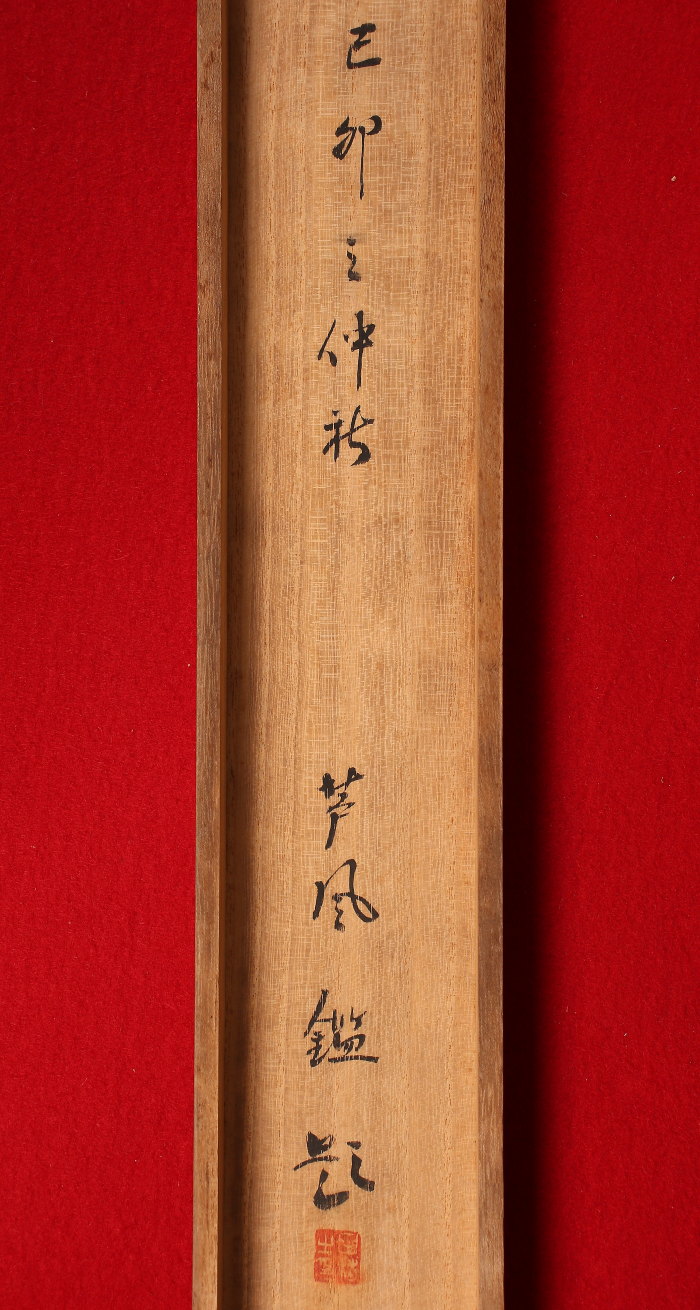 己卯之仲秋
芦風鑑題